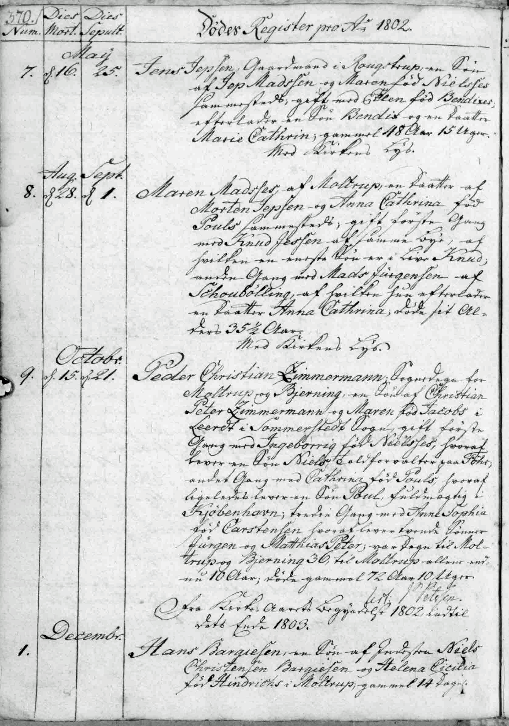 370. Dies Dies
Num. Mort. Sepult. Döder Register pro Ao 1802.
May
7. d. 16. 25. Jens Jepsen, Gaardmand i Rougstrup, en Søn
af Jep Madssen og Maren fød Nielsses
sammesteds, gift med Ellen fød Bendixes,
efterlader en Søn Bendix og en Daatter
Marie Cathrin, gammel 48 Aar 15 Uger.
Med Kirkens Lys.
Aug. Sept.
8. d. 28. d. 1. Maren Madsses, af Moltrup, en Daatter af
Morten Jepsen og Anna Cathrina fød
Pouls sammesteds, gift første Gang
med Knud Jessen af samme Bye, af
hvilken en eneste Søn er i Live Knud,
anden Gang med Mads Jürgensen af
Schoubölling, af hvilken hun efterlader
en Daatter Anna Cathrina, døde sit Al-
ders 35½ Aar.
Med Kirkens Lys.
Octobr.
9. d. 15. d. 21. Peder Christian Zimmermann, Sognedegn for
Moltrup og Bjerning, en Søn af Christian
Peter Zimmermann og Maren fød Jacobs i
i Sommerstedt Sogn, gift første
Gang med Ingeborrig fød Nielsses, hvoraf
lever en Søn Niels, Toldforvalter paa Föhr,
andet Gang med Cathrina fød Pouls hvoraf
ligeledes lever en Søn Poul, fuldmægtig i
Kjöbenhavn, tredie Gang med Anne Sophia
fød Carstensen hvoraf lever tvende Sönner
Jürgen og Matthias Peter, var Degn til Mol-
trup og Bjerning 36, til Moltrup allene end-
nu 10 Aar, døde gammel 72 Aar 10 Uger.
Fra Kirke-Aarets Begyndelse 1802 indtil
dets Ende 1803.
Decembr.
1. Hans Bargiesen, en Søn af Indsten Niels
Christensen Bargiesen, og Helena Cicilia
fød Hindrichs i Moltrup, gammel 14 Dage.